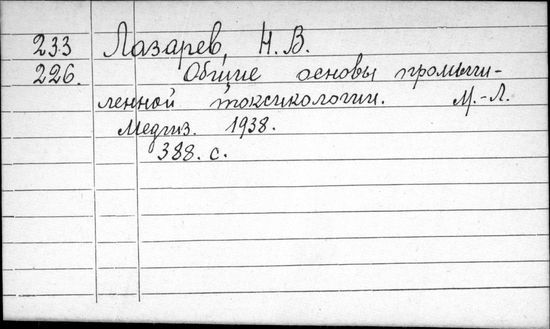 233 Лазарев, Н. В.
226. Общие основы промыш-
ленной токсикологии. М.-Л.
Медгиз. 1938.
388. с.